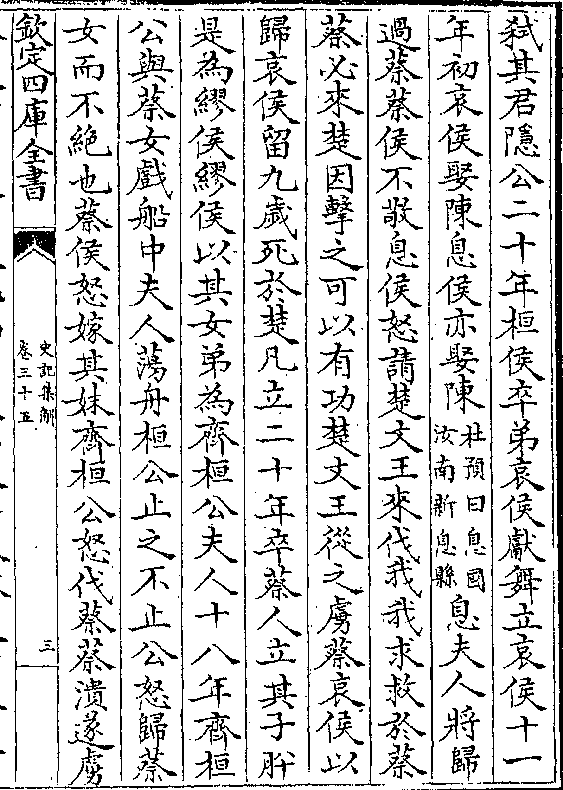 弑其君隱公二十年桓侯卒弟哀侯獻舞立哀侯十一
年初哀侯娶陳息侯亦娶陳杜預曰息國汝南新息縣息夫人將歸
過蔡蔡侯不敬息侯怒請楚文王來伐我我求救於蔡
蔡必來楚因擊之可以有功楚文王從之虜蔡哀侯以
歸哀侯留九歲死於楚凡立二十年卒蔡人立其子肸
是為繆侯繆侯以其女弟為齊桓公夫人十八年齊桓
公與蔡女戲船中夫人蕩舟桓公止之不止公怒歸蔡
女而不絶也蔡侯怒嫁其妹齊桓公怒伐蔡蔡潰遂虜
欽定四庫全書
史記集解
卷三十五
三